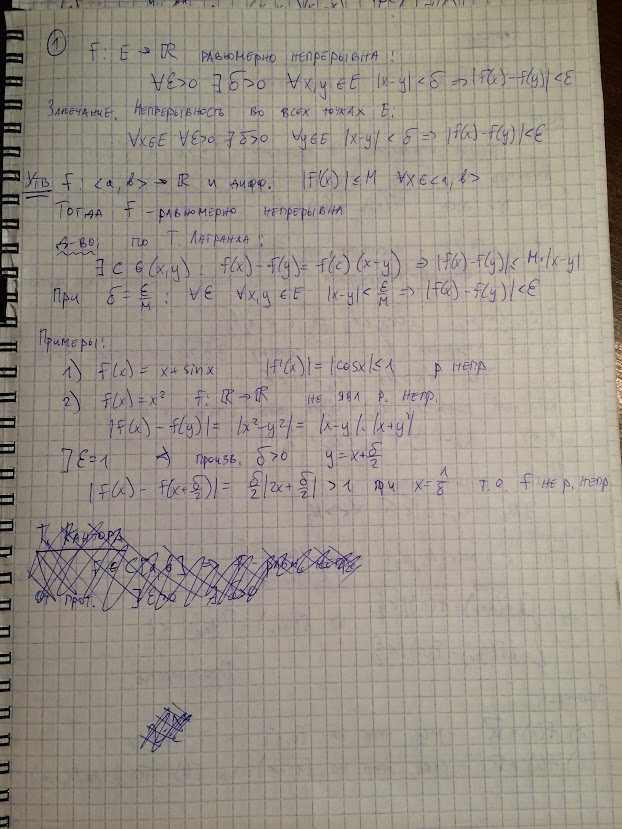 ①
f: E → ℝ равномерно непрерывна:
∀ε>0 ∃δ>0 ∀x,y ∈ E |x-y|<δ ⇒ |f(x)-f(y)|<ε
Замечание. Непрерывность во всех точках E:
∀x∈E ∀ε>0 ∃δ>0 ∀y∈E |x-y|<δ ⇒ |f(x)-f(y)|<ε
Утв f: <a,b> → ℝ и дифф. |f'(x)| ≤ M ∀x∈<a,b>
Тогда f - равномерно непрерывна
Д-во: по т. Лагранжа:
∃ c ∈ (x,y): f(x)-f(y)= f'(c)(x-y) ⇒ |f(x)-f(y)|≤ M·|x-y|
При δ = ε/M : ∀ε ∀x,y ∈ E |x-y|< ε/M ⇒ |f(x)-f(y)|<ε
Примеры:
1) f(x) = x+sinx |f'(x)| = |cosx| ≤ 1 р. непр.
2) f(x)=x² f: ℝ→ℝ не явл р. непр.
|f(x)-f(y)| = |x²-y²| = |x-y|·|x+y|
] ε=1 произв. δ>0 y=x+δ/2
|f(x)-f(x+δ/2)| = δ/2|2x+δ/2| > 1 при x=1/δ т.о. f не р. непр.
Т. Кантора
От прот.